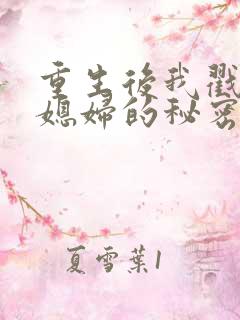 重生後我戳
媳婦的秘密
夏雪葉1